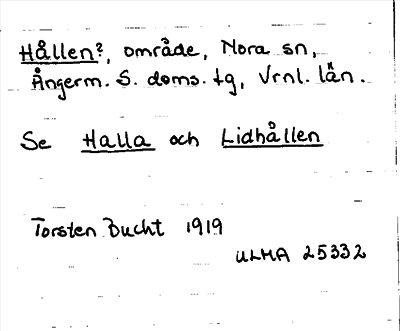 Hållen?, område, Nora sn,
Ångerm. S. doms. tg, Vrnl. län.
Se Halla och Lidhållen
Torsten Bucht 1919
ULMA 25332